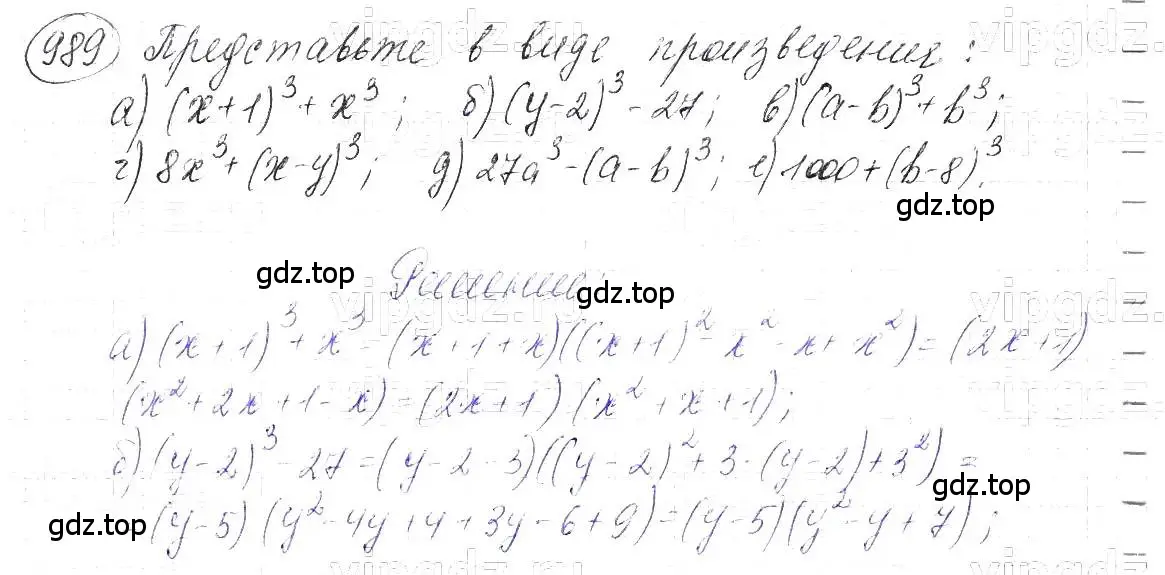 989 Представьте в виде произведения:
а) (x+1)³ + x³; б) (y-2)³ - 27; в) (a-b)³ + b³;
г) 8x³ + (x-y)³; д) 27a³ - (a-b)³; е) 1000 + (b-8)³.
gdz.top
gdz.top
Решение:
gdz.top
а) (x+1)³ + x³ = (x+1+x)((x+1)² - x² - x + x²) = (2x+1)
(x² + 2x + 1 - x) = (2x+1)(x² + x + 1);
б) (y-2)³ - 27 = (y-2-3)((y-2)² + 3·(y-2) + 3²) =
gdz.top
gdz.top
(y-5)(y² - 4y + 4 + 3y - 6 + 9) = (y-5)(y² - y + 7);